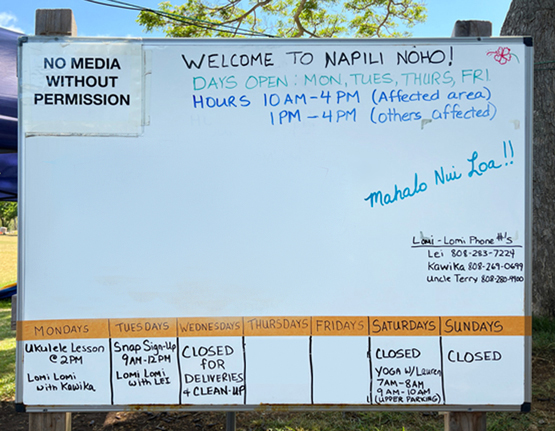 NO MEDIA
WITHOUT
PERMISSION
WELCOME TO NAPILI NOHO!
DAYS OPEN: MON, TUES, THURS, FRI
HOURS 10 AM-4 PM (Affected area)
1 PM - 4 PM (others affected)
Mahalo Nui Loa!!
Lomi-Lomi Phone #'s
Lei 808-283-7224
Kawika 808-269-0699
Uncle Terry 808-280-9900
MONDAYS
Ukulele Lesson
@ 2PM
Lomi Lomi
with Kawika
TUESDAYS
Snap Sign-Up
9AM-12PM
Lomi Lomi
with LEI
WEDNESDAYS
CLOSED
FOR
DELIVERIES
& CLEAN-UP
THURSDAYS
FRIDAYS
SATURDAYS
CLOSED
YOGA W/ Lauren
7AM-8AM
9AM-10AM
(UPPER PARKING)
SUNDAYS
CLOSED